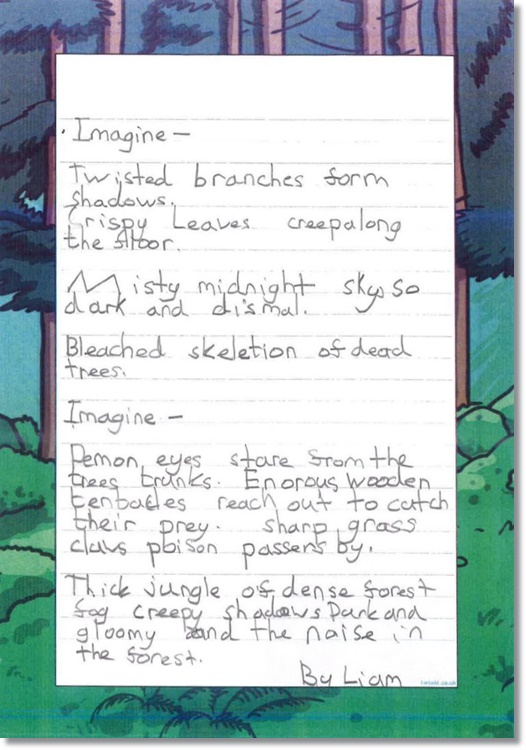 Imagine –
Twisted branches form
shadows.
Crispy Leaves creepalong
the floor.
Misty midnight sky so
dark and dismal.
Bleached skeletion of dead
trees.
Imagine –
Demon eyes stare from the
trees trunks. Enorous wooden
tentacles reach out to catch
their prey. sharp grass
claws poison passers by.
Thick jungle of dense forest
fog creepy shadows Dark and
gloomy and the noise in
the forest.
By Liam
twinkl.co.uk